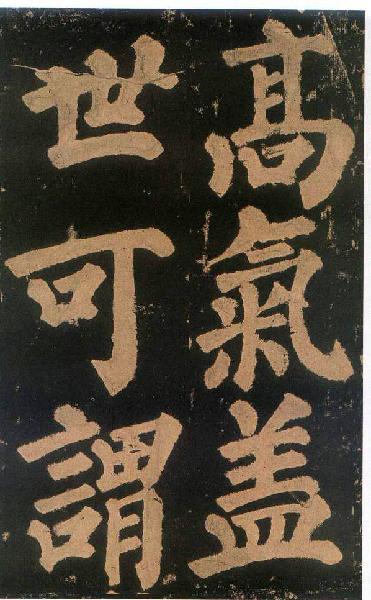 髙氣盖
世可謂